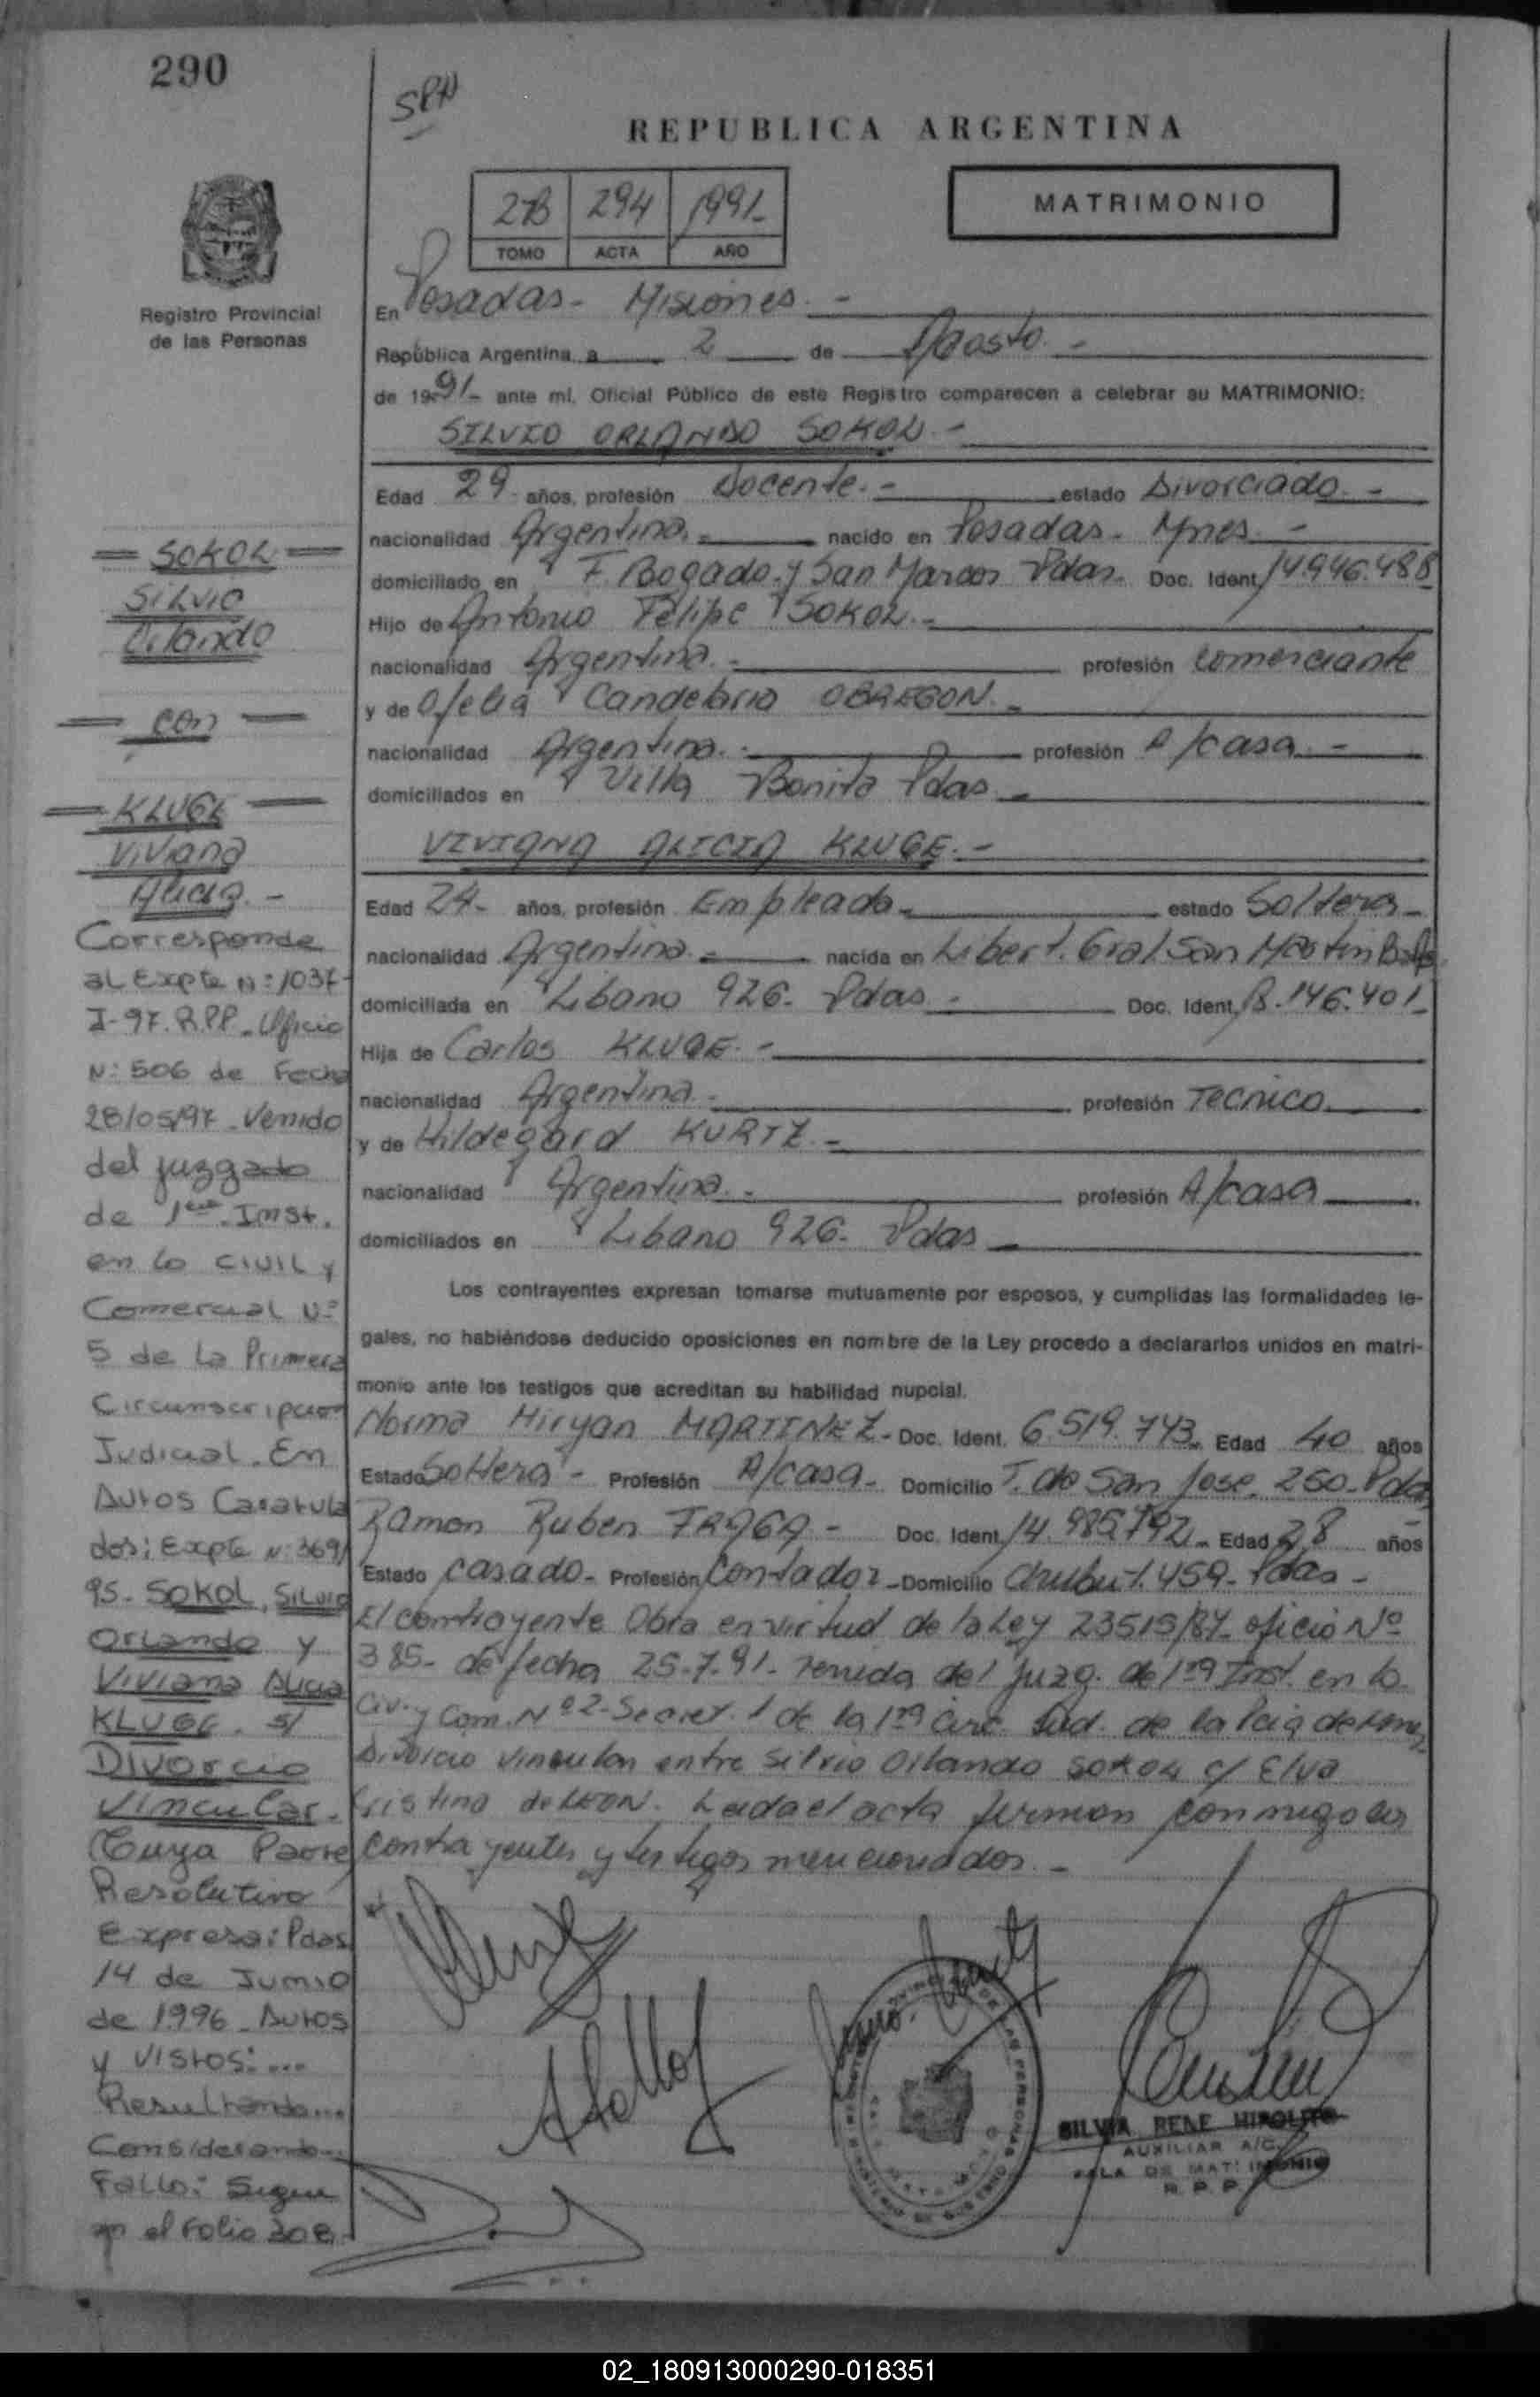 290
SPN
REPUBLICA ARGENTINA
2B 294 1991-
TOMO ACTA AÑO
MATRIMONIO
Registro Provincial
de las Personas
En Posadas- Misiones.-
República Argentina, a 2 de Agosto.-
de 1991- ante mí, Oficial Público de este Registro comparecen a celebrar su MATRIMONIO:
SILVIO ORLANDO SOKOL.-
Edad 29- años, profesión Docente.- estado Divorciado.-
nacionalidad Argentina.- nacido en Posadas- Mnes.-
domiciliado en F. Bogado y San Marcos Pdas. Doc. Ident. 14.946.488
Hijo de Antonio Felipe SOKOL.-
nacionalidad Argentina.- profesión comerciante
y de Ofelia Candelaria OBREGON.-
nacionalidad Argentina.- profesión A/casa.-
domiciliados en Villa Bonita Pdas.-
VIVIANA ALICIA KLUGE.-
Edad 24- años, profesión Empleada- estado Soltera-
nacionalidad Argentina.- nacida en Libert. Gral San Martin
domiciliada en Libano 926- Pdas.- Doc. Ident. 18.146.401-
Hija de Carlos KLUGE.-
nacionalidad Argentina.- profesión Tecnico.
y de Hildegard KURTZ.-
nacionalidad Argentina.- profesión A/casa
domiciliados en Libano 926- Pdas-
Los contrayentes expresan tomarse mutuamente por esposos, y cumplidas las formalidades le-
gales, no habiéndose deducido oposiciones en nombre de la Ley procedo a declararlos unidos en matri-
monio ante los testigos que acreditan su habilidad nupcial.
Norma Miryan MARTINEZ- Doc. Ident. 6.519.743- Edad 40 años
Estado Soltera- Profesión A/casa- Domicilio T. de San Jose 260-Pdas
Ramon Ruben FRAGA- Doc. Ident. 14.985.792- Edad 28 años
Estado casado- Profesión Contador- Domicilio Chubut. 459- Pdas-
El contrayente Obra en virtud de la Ley 23515/87- oficio Nº
385- de fecha 25-7-91- venida del Juzg. de 1ra Inst. en lo
Civ. y Com. Nº 2- Secret. 1 de la 1ra Circ. Jud. de la Pcia de Mnes
Divorcio vincular entre Silvio Orlando SOKOL c/ Elva
Cristina de LEON. Leida el acta firman conmigo los
contrayentes y testigos mencionados.-
SILVIA RENE HIPOLITO
AUXILIAR A/C
SALA DE MATRIMONIO
R. P. P.
SOKOL
Silvio
Orlando
con
KLUGE
Viviana
Alicia.-
Corresponde
al Expte N: 1037-
I-97. R.P.P. Oficio
N: 506 de Fecha
28/05/97- Venido
del juzgado
de 1era. Inst.
en lo civil y
Comercial Nº
5 de La Primera
Circunscripcion
Judicial. En
Autos Caratula
dos: Expte N: 369/
95- Sokol, Silvio
Orlando y
Viviana Alicia
KLUGE. S/
Divorcio
Vincular.
Cuya Parte
Resolutiva
Expresa: Pdas
14 de Junio
de 1996- Autos
y Vistos:...
Resultando...
Considerando...
Fallo: Sigue
en el Folio 308-
02_180913000290-018351